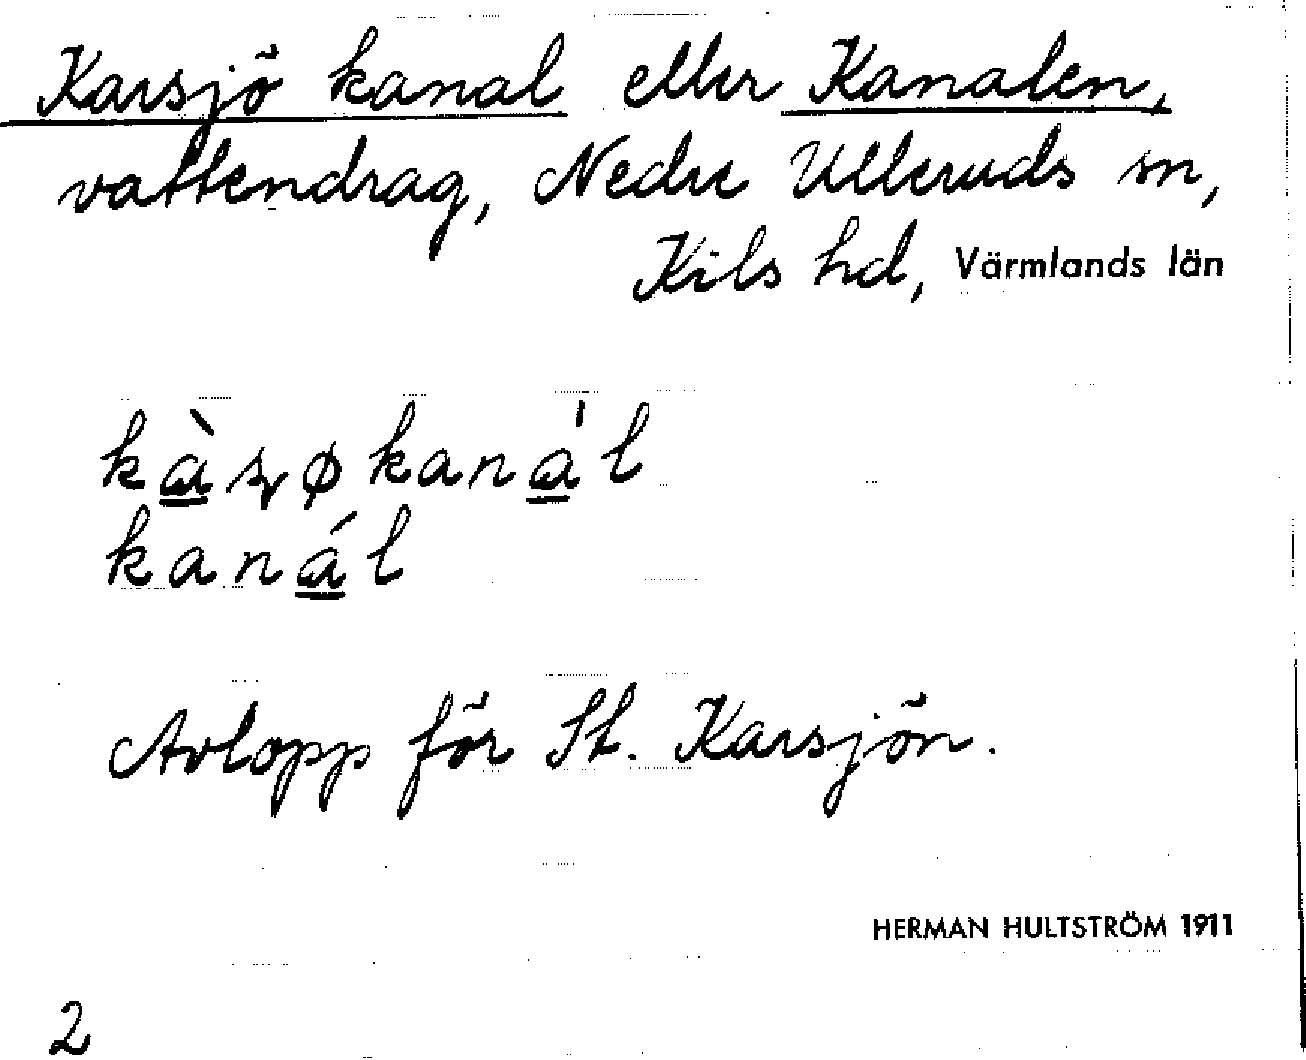 Karsjö kanal eller Kanalen,
vattendrag, Nedre Ulleruds sn,
Kils hd, Värmlands län
kanál
Avlopp för St. Karsjön.
HERMAN HULTSTRÖM 1911
2